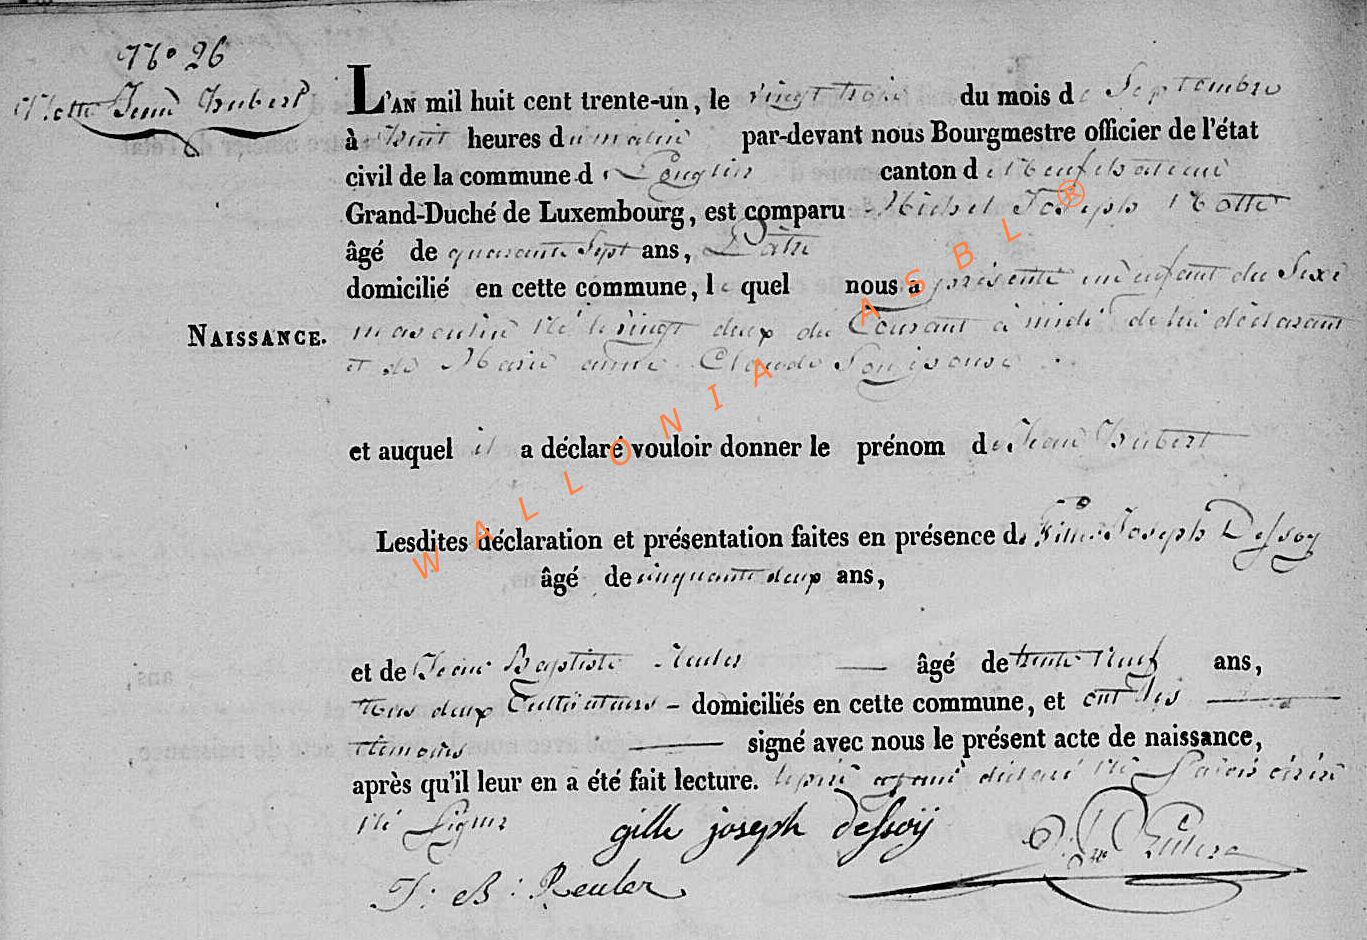 N° 26
Notte Jean Hubert
L'AN mil huit cent trente-un, le vingt trois du mois de Septembre
à huit heures du matin par-devant nous Bourgmestre officier de l'état
civil de la commune de Longlier canton de Neufchateau
Grand-Duché de Luxembourg, est comparu Michel Joseph Notte
âgé de quarante Sept ans, Pâtre
domicilié en cette commune, lequel nous a présenté un enfant du Sexe
NAISSANCE.
masculin Né le vingt deux du Courant à midi de lui déclarant
et de Marie anne Claude Son épouse
et auquel il a déclaré vouloir donner le prénom de Jean Hubert
Lesdites déclaration et présentation faites en présence de Gille Joseph Dessoy
âgé de cinquante deux ans,
et de Jean Baptiste Reuler âgé de trente Neuf ans,
tous deux Cultivateurs domiciliés en cette commune, et ont les
témoins signé avec nous le présent acte de naissance,
après qu'il leur en a été fait lecture. le père ayant déclaré Ne Savoir écrire
Ni Signer
gille joseph dessoÿ
J: B: Reuler
WALLONIA ASBL ®